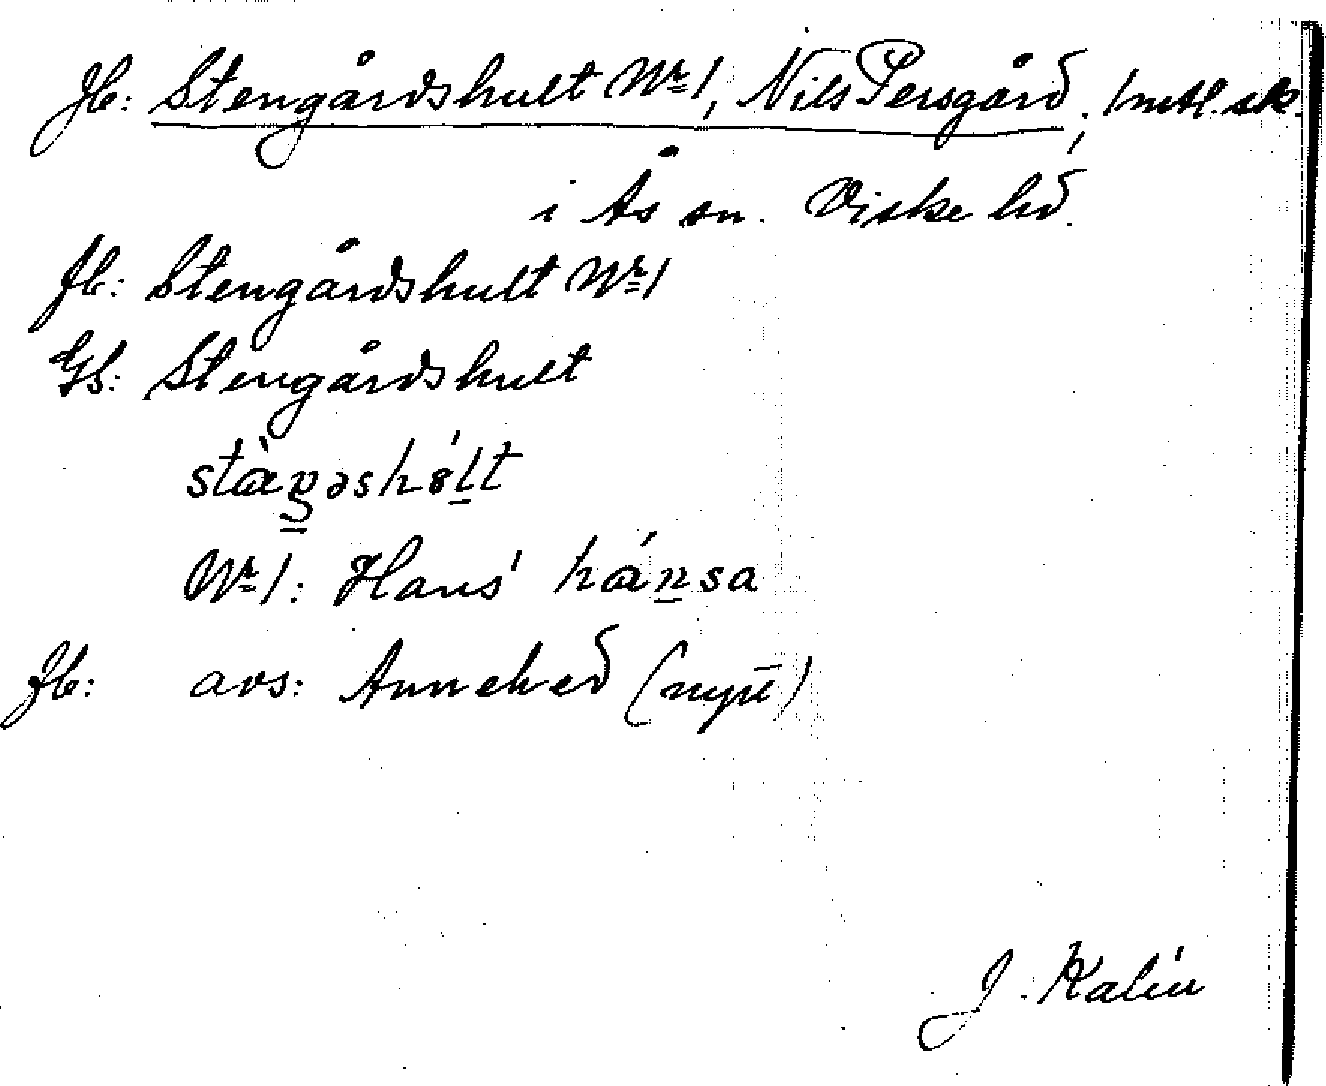 Jb: Stengårdshult Nr 1, Nils Persgård, 1 mtl. sk.
i Ås sn. Viske hd.
Jb: Stengårdshult Nr 1
Gb: Stengårdshult
Nr 1: Hans' hánsa
Jb: avs: Annehed (nytt)
J. Kalén